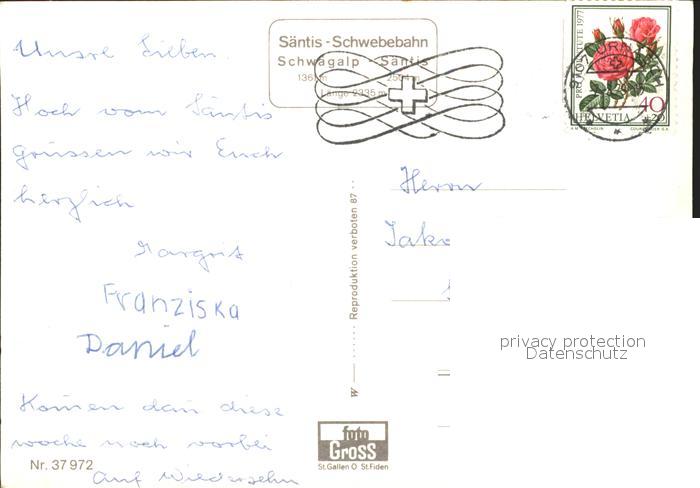 Unsre Lieben.
Hoch vom Säntis
grüssen wir Euch
herzlich
Margrit
Franziska
Daniel
Komen dan diese
woche noch vorbei
Auf Wiedersehn
Nr. 37972
Säntis-Schwebebahn
Schwägalp - Säntis
2504 m
Länge 2335 m
Reproduktion verboten 87
W
foto
GROSS
St.Gallen O St.Fiden
PRO JUVENTUTE 1977
40
+20
HELVETIA
COURVOISIER S.A.
Herrn
privacy protection
Datenschutz